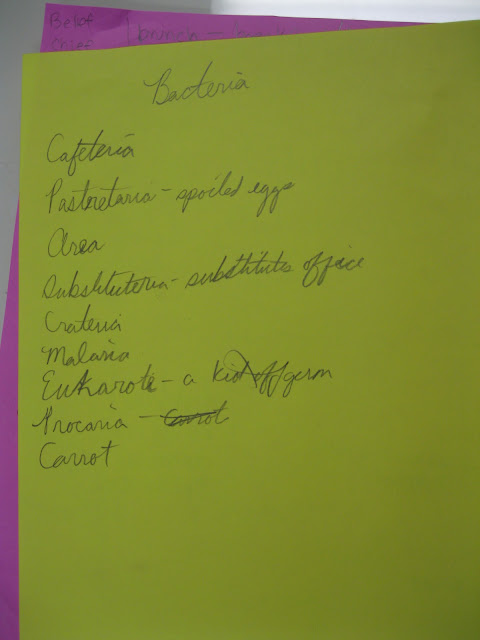 Belief
Chief
Bacteria
Cafeteria
Pastretaria - spoiled eggs
Area
Substituteria - substitutes office
Crateria
Malaria
Eukarote - a kid off germ
Procaria - Carrot
Carrot